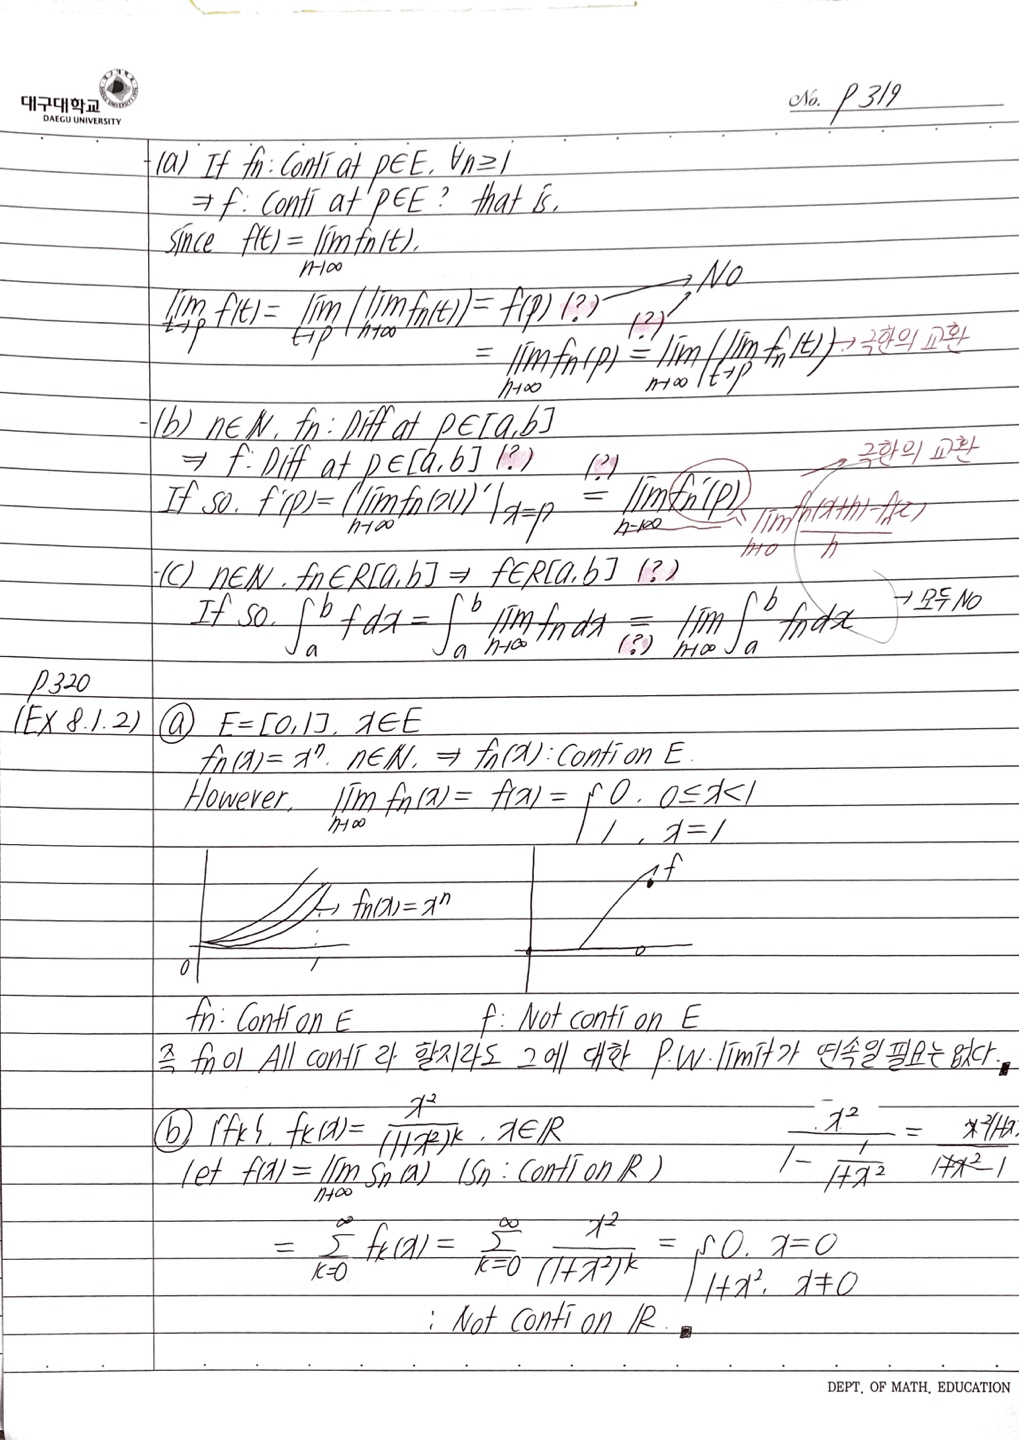 대구대학교
DAEGU UNIVERSITY
No. P 319
(a) If fn : Conti at p∈E, ∀n≥1
⇒ f : Conti at p∈E ? that is,
since f(t) = lim fn(t),
n→∞
lim f(t) = lim (lim fn(t)) = f(p) (?) → No
t→p t→p n→∞
= lim fn(p) (?) = lim (lim fn(t)) → 극한의 교환
n→∞ n→∞ t→p
(b) n∈N, fn : Diff at p∈[a,b]
⇒ f : Diff at p∈[a,b] (?)
극한의 교환
If so, f'(p) = (lim fn(x))' |x=p (?) = lim fn'(p)
n→∞ n→∞
lim fn(x+h)-fn(x) / h
h→0
(c) n∈N, fn∈R[a,b] ⇒ f∈R[a,b] (?)
If so, ∫_a^b f dx = ∫_a^b lim fn dx = (?) lim ∫_a^b fn dx → 모두 No
n→∞ n→∞
P320
(EX 8.1.2) ⓐ E=[0,1], x∈E
fn(x) = xⁿ, n∈N, ⇒ fn(x) : Conti on E.
However, lim fn(x) = f(x) = { 0, 0≤x<1
n→∞ 1, x=1
→ fn(x) = xⁿ
f
0 1
fn : Conti on E f : Not conti on E
즉 fn이 All conti 라 할지라도 그에 대한 P.W.limit가 연속일 필요는 없다.
ⓑ {fk}, fk(x) = x²/(1+x²)^k, x∈R
x² / (1 - 1/(1+x²)) = x²(1+x²) / (1+x²-1)
let f(x) = lim Sn(x) (Sn : Conti on R)
n→∞
= ∑_{k=0}^∞ fk(x) = ∑_{k=0}^∞ x²/(1+x²)^k = { 0, x=0
1+x², x≠0
: Not conti on R.
DEPT. OF MATH. EDUCATION